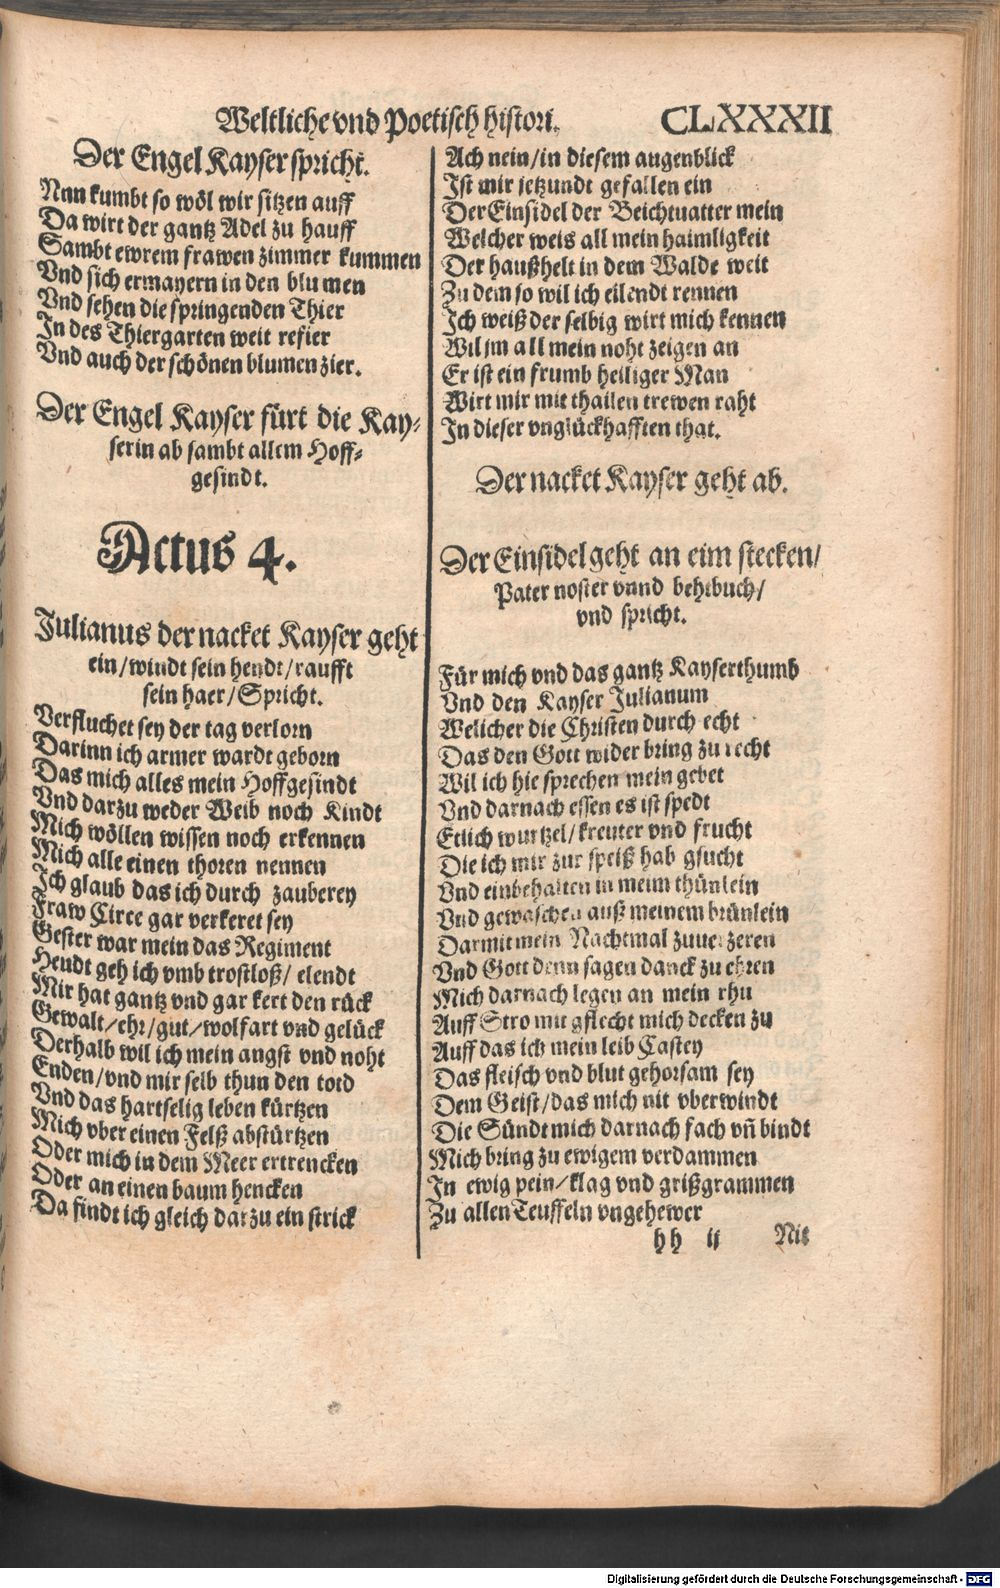 Weltliche vnd Poetisch histori. CLXXXII
Der Engel Kayser spricht.
Nun kumbt so wöl wir sitzen auff
Da wirt der gantz Adel zu hauff
Sambt ewrem frawen zimmer kummen
Vnd sich ermayern in den blumen
Vnd sehen die springenden Thier
In des Thiergarten weit refier
Vnd auch der schönen blumen zier.
Der Engel Kayser fürt die Kay⸗
serin ab sambt allem Hoff⸗
gesindt.
Actus 4.
Julianus der nacket Kayser geht
ein/windt sein hendt/raufft
sein haer/Spricht.
Verfluchet sey der tag verlorn
Darinn ich armer wardt geborn
Das mich alles mein Hoffgesindt
Vnd darzu weder Weib noch Kindt
Mich wöllen wissen noch erkennen
Mich alle einen thoren nennen
Ich glaub das ich durch zauberey
Fraw Circe gar verkeret sey
Gester war mein das Regiment
Heudt geh ich vmb trostloß/ elendt
Mir hat gantz vnd gar kert den rück
Gewalt/ehr/gut/wolfart vnd gelück
Derhalb wil ich mein angst vnd noht
Enden/vnd mir selb thun den todt
Vnd das hartselig leben kürtzen
Mich vber einen Felß abstürtzen
Oder mich in dem Meer ertrencken
Oder an einen baum hencken
Da findt ich gleich darzu ein strick
Ach nein/in diesem augenblick
Ist mir jetzundt gefallen ein
Der Einsidel der Beichtuatter mein
Welcher weis all mein haimligkeit
Der haußhelt in dem Walde weit
Zu dem so wil ich eilendt rennen
Ich weiß der selbig wirt mich kennen
Wil jm all mein noht zeigen an
Er ist ein frumb heiliger Man
Wirt mir mit thailen trewen raht
In dieser vnglückhafften that.
Der nacket Kayser geht ab.
Der Einsidel geht an eim stecken/
Pater noster vnnd behtbuch/
vnd spricht.
Für mich vnd das gantz Kayserthumb
Vnd den Kayser Julianum
Welicher die Christen durch echt
Das den Gott wider bring zu recht
Wil ich hie sprechen mein gebet
Vnd darnach essen es ist spedt
Etlich wurtzel/kreuter vnd frucht
Die ich mir zur speiß hab gsucht
Vnd einbehalten in meim thünlein
Vnd gewaschen auß meinem brünlein
Darmit mein Nachtmal zuuerzeren
Vnd Gott denn sagen danck zu ehren
Mich darnach legen an mein rhu
Auff Stro mit gflecht mich decken zu
Auff das ich mein leib Castey
Das fleisch vnd blut gehorsam sey
Dem Geist/das mich nit vberwindt
Die Sündt mich darnach fach vn̄ bindt
Mich bring zu ewigem verdammen
In ewig pein/klag vnd grißgrammen
Zu allen Teuffeln vngehewer
hh ij Nit
Digitalisierung gefördert durch die Deutsche Forschungsgemeinschaft - DFG